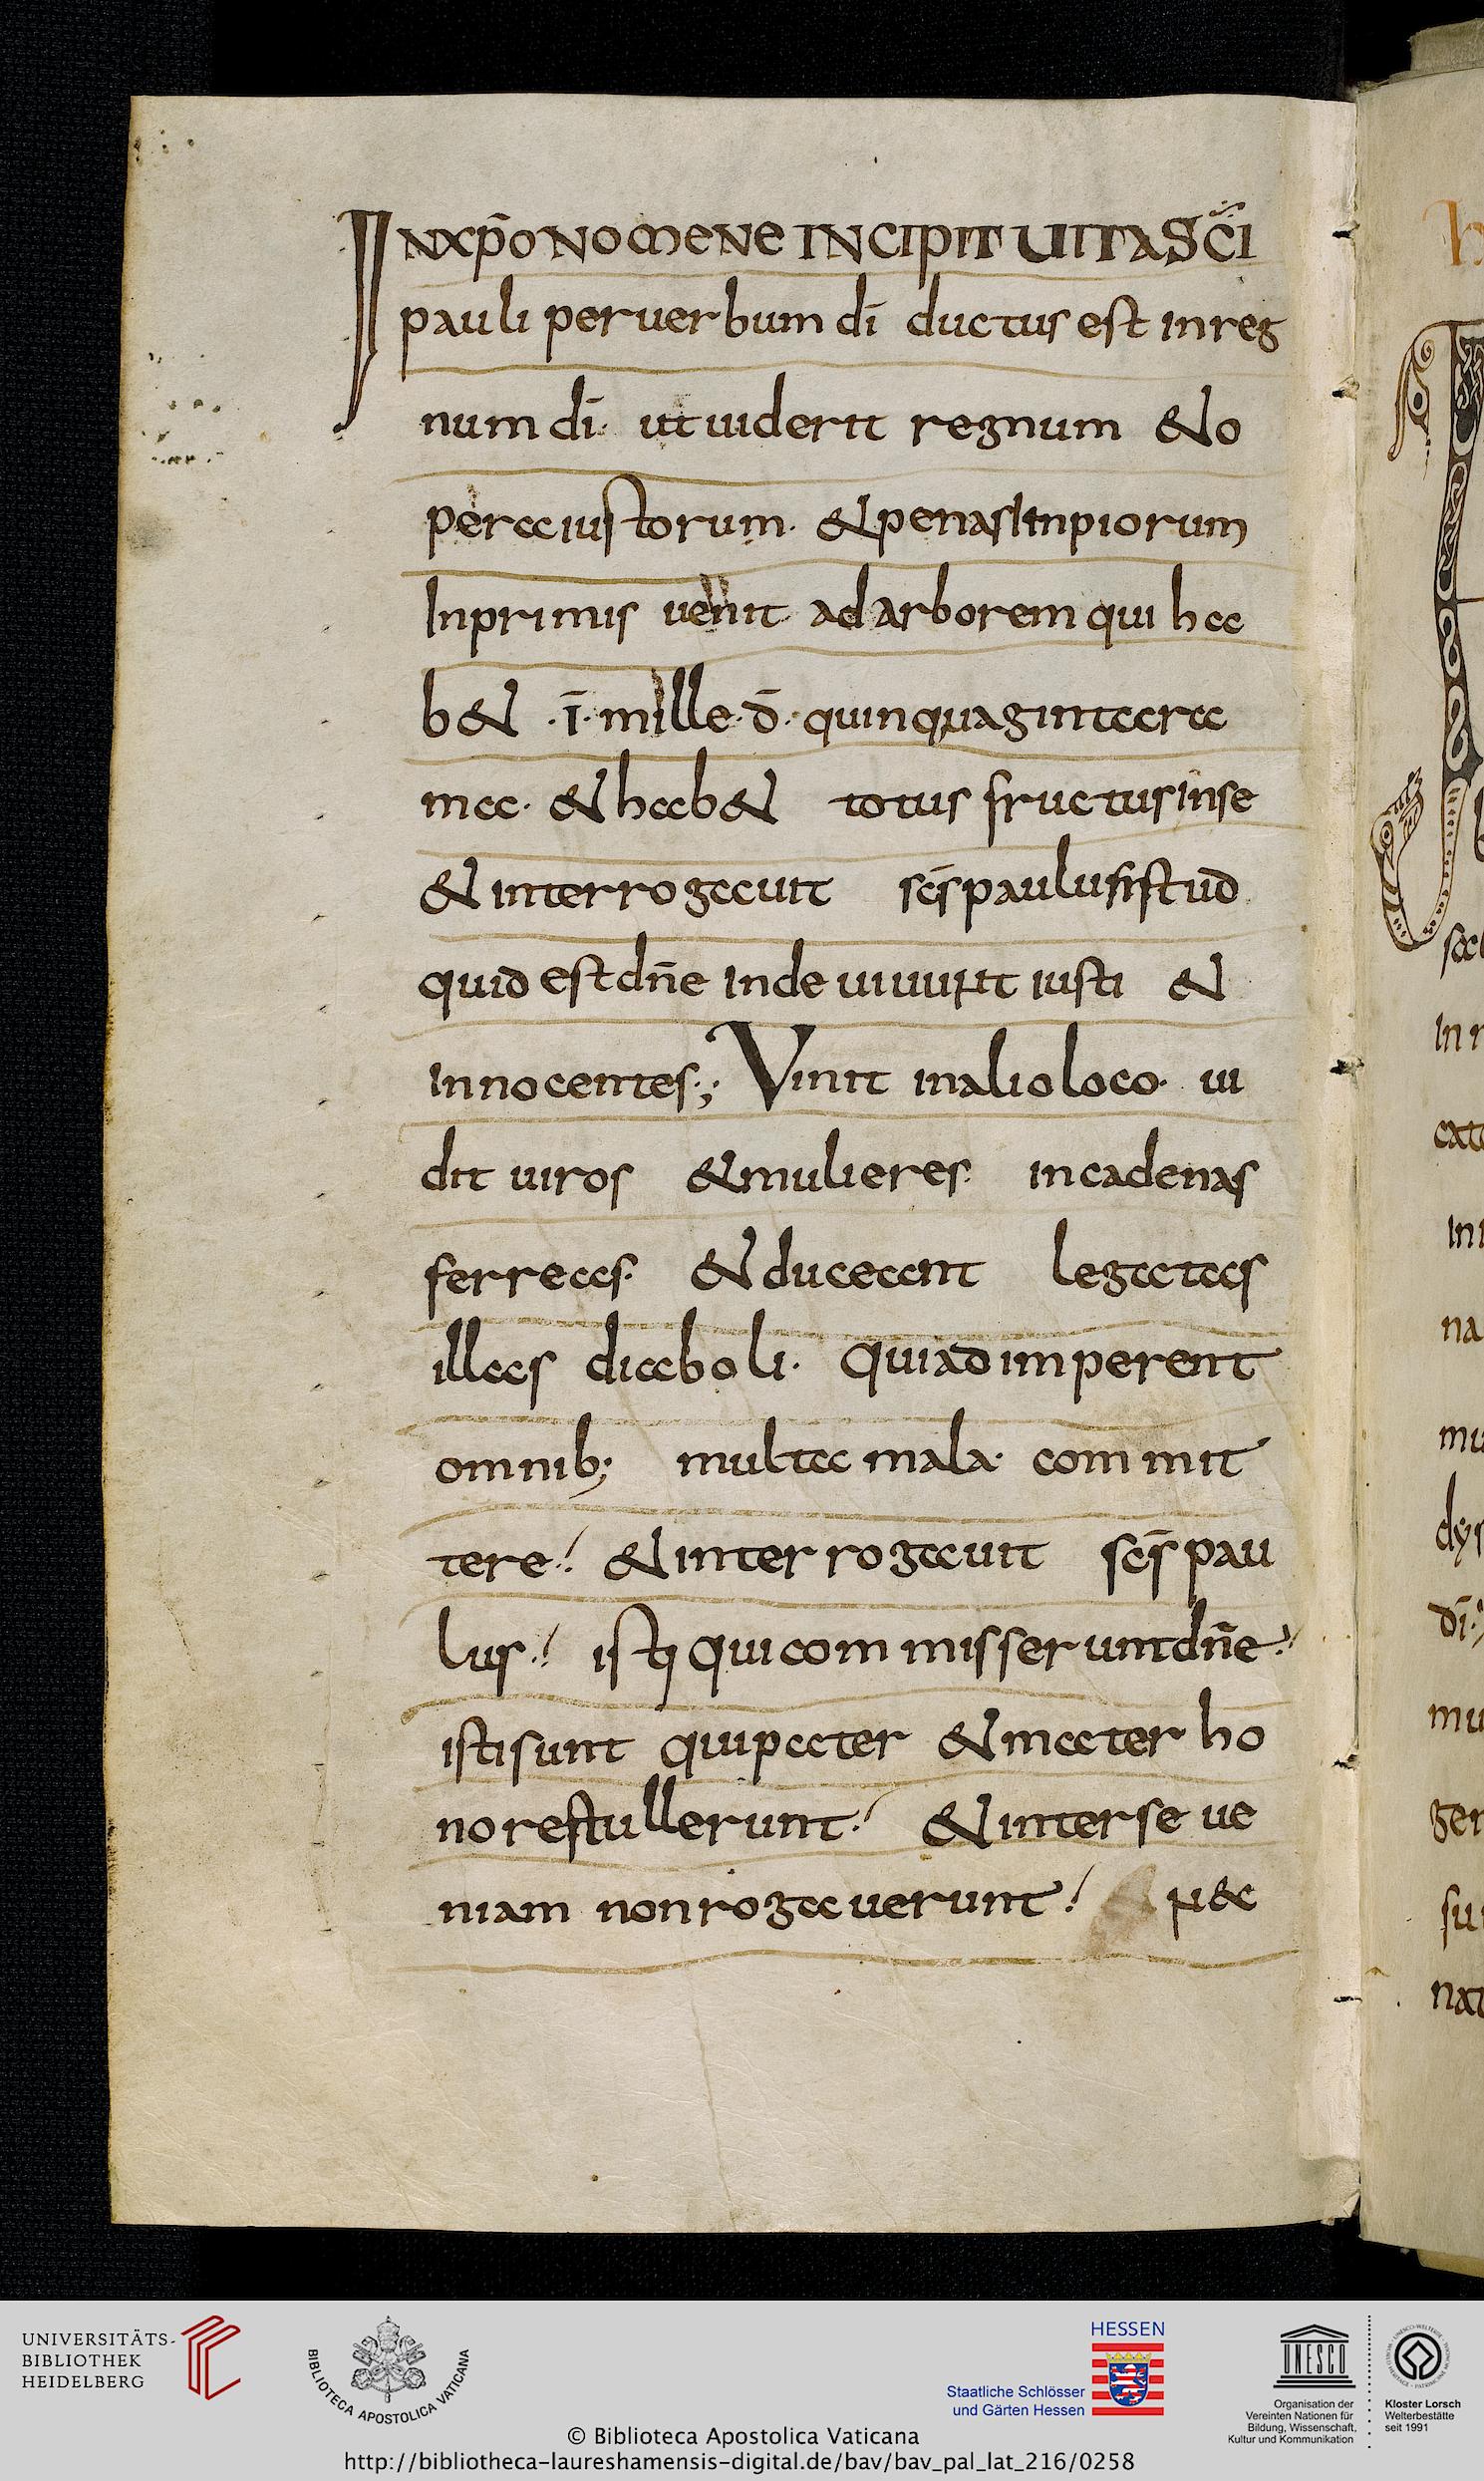 INXP̄O NOMENE INCIPIT UITA SC̄I
pauli per uerbum dī ductus est in reg
num dī· ut uiderit regnum & o
pera iustorum· & penas Inpiorum
Inprimis uenit ad arborem qui ha
b& ·ī· mille·d̄· quinquaginta ra
ma· & hab& totus fructus in se
& interrogauit sc̄s paulus istud
quid est dn̄e inde uiuunt iusti &
innocentes·; Vinit in alio loco· ui
dit uiros & mulieres· in cadenas
ferreas· & duceant legatas
illas diaboli· qui ad imperent
omnib; multa mala· commit
tere·/ & interrogauit sc̄s pau
lus·/ isti qui commisserunt dn̄e·/
isti sunt qui pater & mater ho
nores tullerunt·/ & inter se ue
niam non rogauerunt·/ n&
h
sac
in r
cata
in
na
mu
dys
dī·
mu
ger
su
nat
UNIVERSITÄTS-
BIBLIOTHEK
HEIDELBERG
BIBLIOTECA APOSTOLICA VATICANA
HESSEN
Staatliche Schlösser
und Gärten Hessen
UNESCO
Organisation der
Vereinten Nationen für
Bildung, Wissenschaft,
Kultur und Kommunikation
Kloster Lorsch
Welterbestätte
seit 1991
© Biblioteca Apostolica Vaticana
http://bibliotheca-laureshamensis-digital.de/bav/bav_pal_lat_216/0258